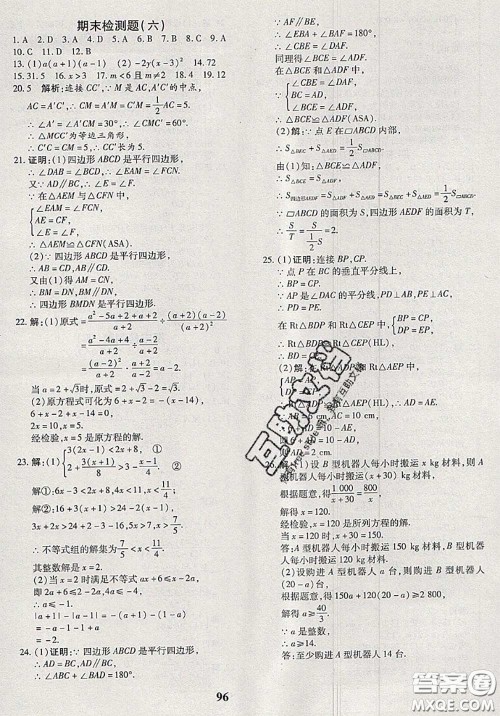 期末检测题(六)
1. A 2. D 3. A 4. D 5. A 6. B 7. B 8. C 9. A
10. C 11. D 12. A
13. (1)(a+1)(a-1) (2)-2y(x-3)² 14. 72
15. 31.5 16. x>3 17. m<6且m≠2 18. 4 19. 12
20. 5 解析:连接CC′,∵M是AC,A′C′的中点,
AC=A′C′,∴CM=A′M=C′M=½AC=5.
∴∠A′=∠A′CM=30°,∴∠CMC′=60°.
∴△MCC′为等边三角形,
∴C′C=CM=5.
21. 证明:(1)四边形ABCD是平行四边形,
∴∠DAB=∠BCD,∴∠EAM=∠FCN.
又∵AD∥BC,∴∠E=∠F.
在△AEM与△CFN中,
{∠EAM=∠FCN,
AE=CF,
∠E=∠F,
∴△AEM≌△CFN(ASA).
(2)∵四边形ABCD是平行四边形,
∴AB=CD,AB∥CD.
又由(1),得AM=CN,
∴BM=DN,BM∥DN,
∴四边形BMDN是平行四边形.
22. 解:(1)原式=(a²-5a+2+a+2)/(a+2)÷(a+2)(a-2)/(a+2)²
=(a²-4a+4)/(a+2)÷(a-2)/(a+2)
=(a-2)²/(a+2)·(a+2)/(a-2)=a-2.
当a=2+√3时,原式=2+√3-2=√3.
(2)原方程式可化为6+x(x+2)=(x-2)(x+2),
6+x²-2x=x²-4,
2x=10,x=5.
经检验,x=5是原方程的解.
23. 解:(1){
2+3(x+1)/8>3-(x-1)/4 ②
解①:6x-3<2x+8,4x<11,x<11/4;
解②:16+3(x+1)>24-2(x-1),
3x+2x>24+2-16-3,5x>7,x>7/5.
∴不等式组的解集为7/5<x<11/4.
其整数解是x=2.
(2)当x=2时满足不等式ax+6≤x-2a,
∴2a+6≤2-2a,4a≤-4,
∴a≤-1.
|a+1|-|a-1|=-(a+1)-(1-a)
=-a-1-1+a=-2.
24. (1)证明:∵四边形ABCD是平行四边形,
∴AD=BC,AD∥BC,
∴∠ABC+∠BAD=180°.
∵AF∥BE,
∴∠EBA+∠BAF=180°.
∴∠CBE=∠DAF.
同理得∠BCE=∠ADF.
在△BCE和△ADF中,
{∠CBE=∠DAF,
BC=AD,
∠BCE=∠ADF,
∴△BCE≌△ADF(ASA).
(2)解:∵点E在▱ABCD内部,
∴S△BEC+S△AED=½S▱ABCD.
由(1)知:△BCE≌△ADF,
∴S△BCE=S△ADF.
∴S四边形AEDF=S△ADF+S△AED=S△BEC+S△AED=½S▱ABCD.
∵▱ABCD的面积为S,四边形AEDF的面积为T,
∴S/T=S/(½S)=2.
25. (1)证明:连接BP,CP.
∵点P在BC的垂直平分线上,
∴BP=CP.
∵AP是∠DAC的平分线,PD⊥AB,PE⊥AC,
∴DP=EP.
在Rt△BDP和Rt△CEP中,{BP=CP,
DP=EP,
∴Rt△BDP≌Rt△CEP(HL),
∴BD=CE.
(2)解:在Rt△ADP和Rt△AEP中,
Rt△AEP(HL),∴AD=AE.
=10 cm,
=5 cm.
26. 解:(1)设B型机器人每小时搬运x kg材料,则A
型机器人每小时搬运(x+30)kg,
根据题意,得1 000/(x+30)=800/x,
解得x=120.
经检验,x=120是所列方程的解.
答:A型机器人每小时搬运150 kg材料,B型机
器人每小时搬运120 kg材料.
(2)设购进A型机器人a台,则购进B型机器人
(20-a)台,
根据题意,得150a+120(20-a)≥2 800,
解得a≥40/3.
∵a是整数,
∴a≥14.
答:至少购进A型机器人14台.
互助文档
96
答案圈
MXQE.COM